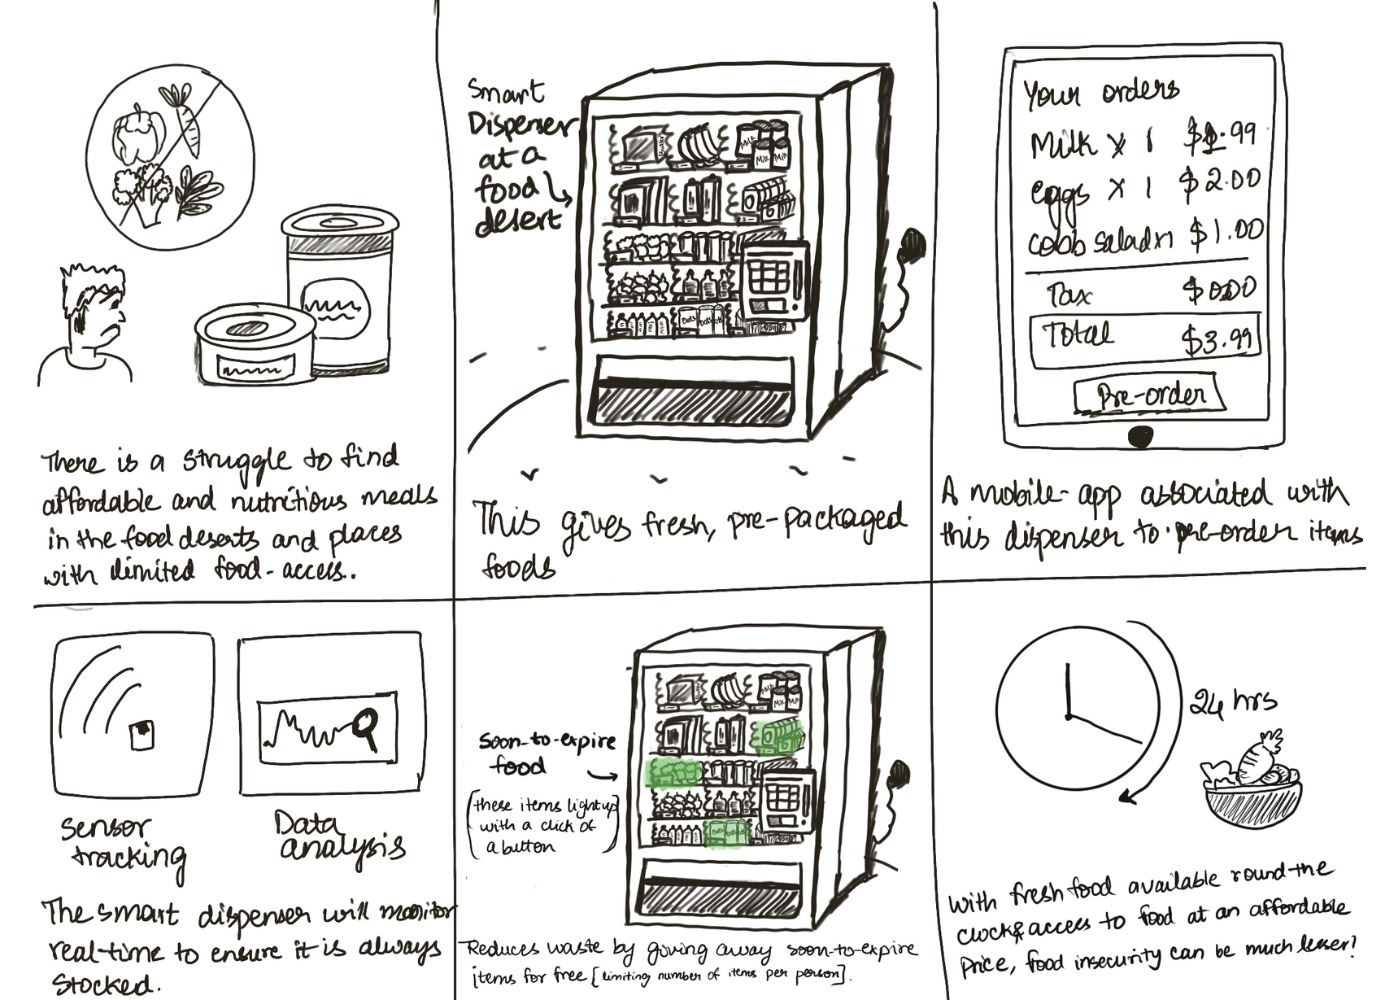 There is a struggle to find
affordable and nutritious meals
in the food deserts and places
with limited food-access..
Smart
Dispenser
at a
food
desert
This gives fresh, pre-packaged
foods
Your orders
Milk x 1 $
eggs x 1 $2.00
cobb salad x1 $1.00
Tax $0.00
Total $3.99
Pre-order
A mobile-app associated with
this dispenser to pre-order items
sensor
tracking
Data
analysis
The smart dispenser will monitor
real-time to ensure it is always
stocked.
soon-to-expire
food
(these items light up
with a click of
a button)
Milk
Milk
Reduces waste by giving away soon-to-expire
items for free [limiting number of items per person].
24 hrs
With fresh food available round-the
clock & access to food at an affordable
price, food insecurity can be much lesser!